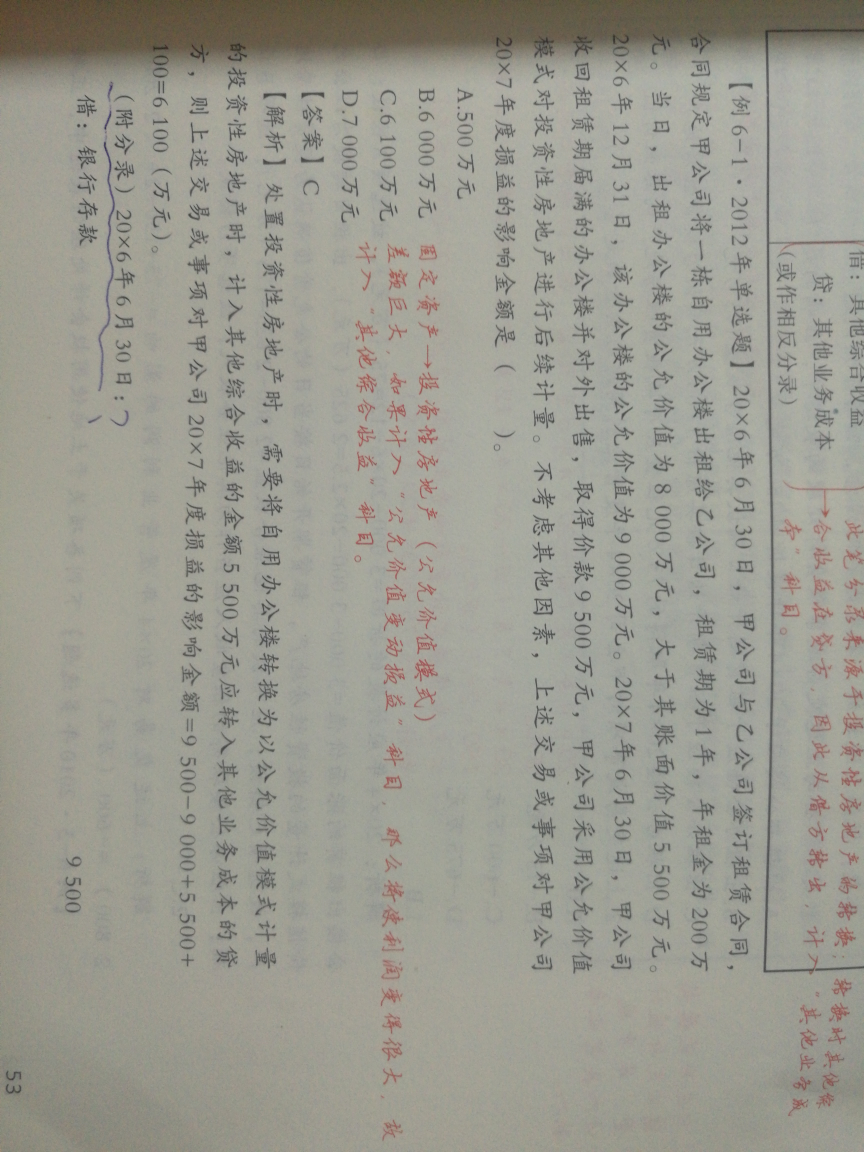 借：其他综合收益
贷：其他业务成本
（或作相反分录）
此笔分录来源于投资性房地产的转换；转换时其他综
合收益在贷方，因此从借方转出，计入“其他业务成
本”科目。
【例6-1·2012年单选题】20×6年6月30日，甲公司与乙公司签订租赁合同，
合同规定甲公司将一栋自用办公楼出租给乙公司，租赁期为1年，年租金为200万
元。当日，出租办公楼的公允价值为8 000万元，大于其账面价值5 500万元。
20×6年12月31日，该办公楼的公允价值为9 000万元。20×7年6月30日，甲公司
收回租赁期届满的办公楼并对外出售，取得价款9 500万元，甲公司采用公允价值
模式对投资性房地产进行后续计量。不考虑其他因素，上述交易或事项对甲公司
20×7年度损益的影响金额是（ ）。
A.500万元
B.6 000万元
C.6 100万元
D.7 000万元
固定资产→投资性房地产（公允价值模式）
差额巨大，如果计入“公允价值变动损益”科目，那么将使利润变得很大，故
计入“其他综合收益”科目。
【答案】C
【解析】处置投资性房地产时，需要将自用办公楼转换为以公允价值模式计量
的投资性房地产时，计入其他综合收益的金额5 500万元应转入其他业务成本的贷
方，则上述交易或事项对甲公司20×7年度损益的影响金额=9 500-9 000+5 500+
100=6 100（万元）。
（附分录）20×6年6月30日：
借：银行存款 9 500
53